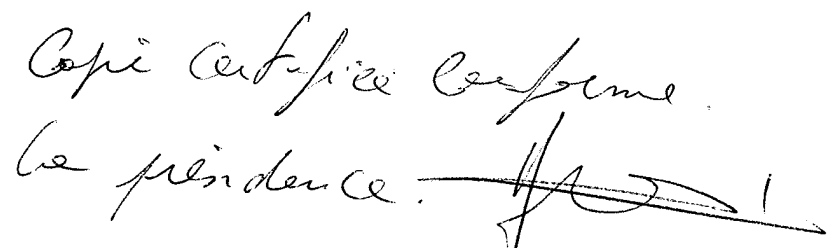 Copie certifiée conforme.
La présidence.